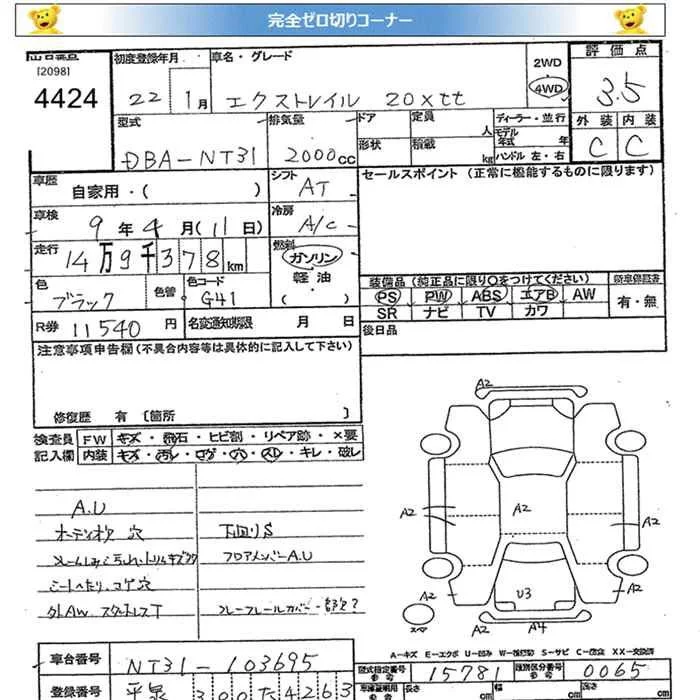 完全ゼロ切りコーナー
出品番号 初度登録年月 車名・グレード 2WD 評価点
[2098]
4424 22 1月 エクストレイル 20xtt 4WD 3.5
型式 排気量 ドア 定員 人 ディーラー・並行 外装 内装
DBA-NT31 2000cc 形状 積載 kg モデル年式 年 ハンドル 左・右 C C
車歴 自家用・( ) シフト AT セールスポイント (正常に機能するものに限ります)
車検 9年4月(11日) 冷房 A/C
走行 14万9千378km 燃料 ガソリン・軽油・( )
色 ブラック 色替 色コード G41
装備品 (純正品に限り○をつけてください) 新車保証書
PS PW ABS エアB AW 有・無
SR ナビ TV カワ
R券 11540円 名変通知期限 月 日 後日品
注意事項申告欄 (不具合内容等は具体的に記入して下さい)
修復歴 有 [箇所 ]
検査員記入欄 FW キズ・飛石・ヒビ割・リペア跡・×要
内装 キズ・汚レ・コゲ・穴・スレ・キレ・破レ
A.U
オーディオ穴 下回りS
フロアメンバーA.U
シートへたり、コゲ穴
外AW スタットレスT
A2
A2 A2 A2 A2
A2 U3 A2
A2 A4
スペア
A-キズ E-エクボ U-凹み W-補修跡 S-サビ C-腐食 XX-交換済
車台番号 NT31-103695 型式指定番号 15781 類別区分番号 0065
登録番号 平泉 300 た 4263 長さ cm 幅 cm 高さ cm